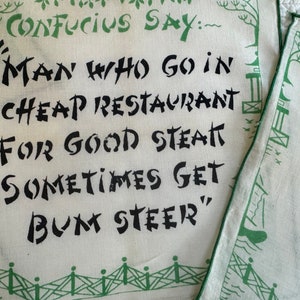 CONFUCIUS SAY:~
"MAN WHO GO IN
CHEAP RESTAURANT
FOR GOOD STEAK
SOMETIMES GET
BUM STEER"